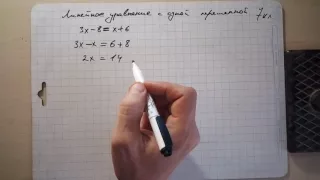 Линейное уравнение с одной переменной 7кл
3x-8=x+6
3x-x=6+8
2x=14